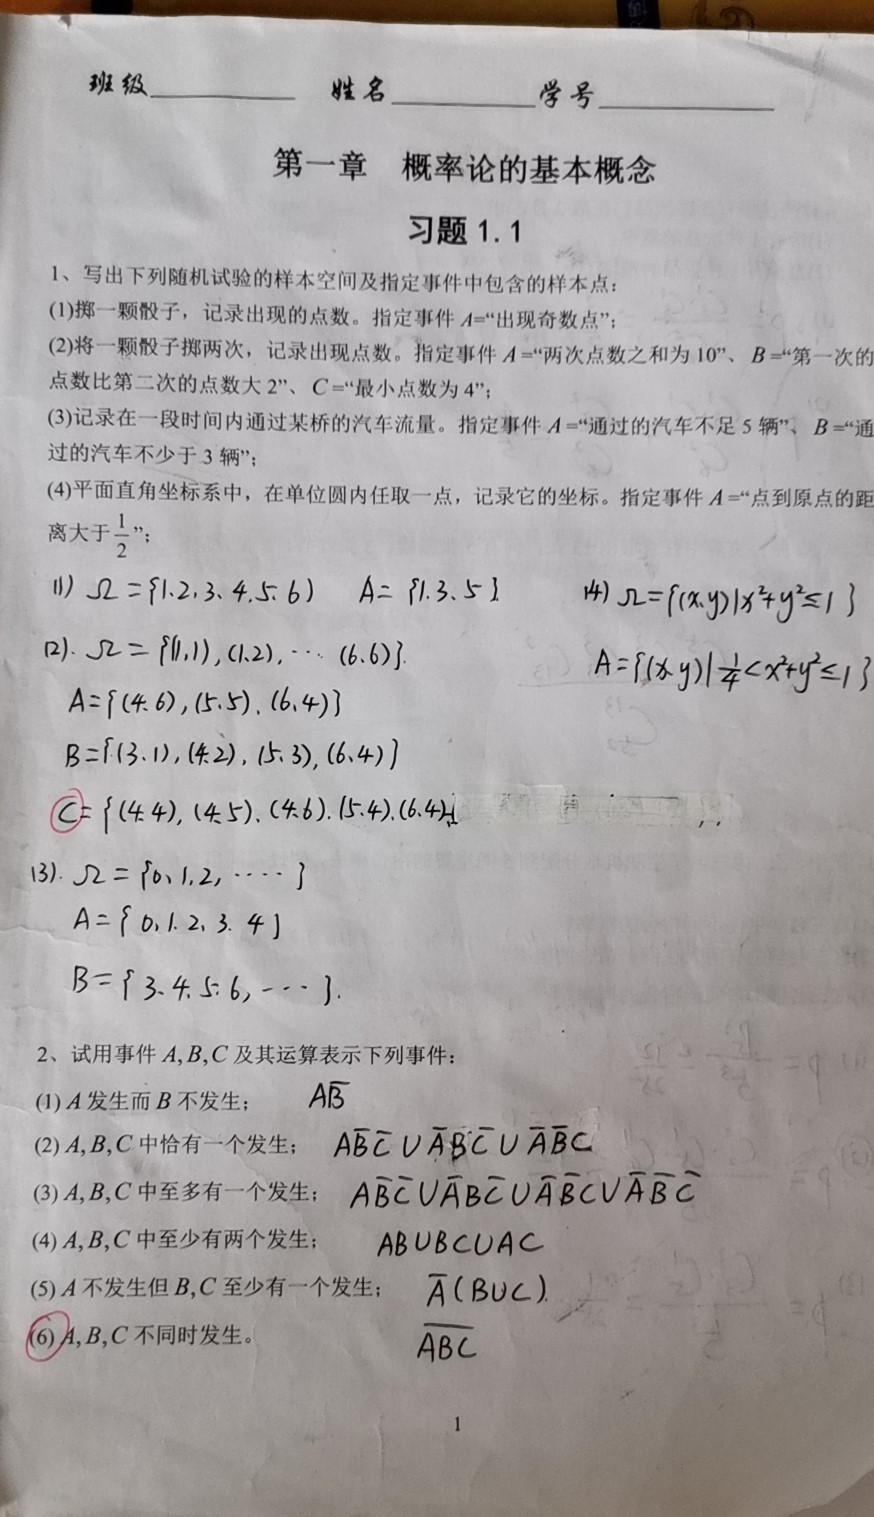 班级 姓名 学号
第一章 概率论的基本概念
习题1.1
1、写出下列随机试验的样本空间及指定事件中包含的样本点：
(1)掷一颗骰子，记录出现的点数。指定事件 A=“出现奇数点”；
(2)将一颗骰子掷两次，记录出现点数。指定事件 A=“两次点数之和为 10”、B=“第一次的
点数比第二次的点数大 2”、C=“最小点数为 4”；
(3)记录在一段时间内通过某桥的汽车流量。指定事件 A=“通过的汽车不足 5 辆”、B=“通
过的汽车不少于 3 辆”；
(4)平面直角坐标系中，在单位圆内任取一点，记录它的坐标。指定事件 A=“点到原点的距
离大于 1/2 ”；
(1) Ω={1.2.3.4.5.6} A={1.3.5}
(4) Ω={(x,y)|x²+y²≤1}
A={(x,y)|1/4<x²+y²≤1}
(2). Ω={(1,1),(1.2),… (6.6)}.
A={(4.6),(5.5),(6.4)}
B={(3.1),(4.2),(5.3),(6.4)}
C={(4.4),(4.5),(4.6),(5.4),(6.4)}
(3). Ω={0,1,2,····}
A={0,1.2,3.4}
B={3.4.5.6,---}.
2、试用事件 A,B,C 及其运算表示下列事件：
(1) A 发生而 B 不发生； AB̅
(2) A,B,C 中恰有一个发生； AB̅C̅∪A̅BC̅∪A̅B̅C
(3) A,B,C 中至多有一个发生； AB̅C̅∪A̅BC̅∪A̅B̅C∪A̅B̅C̅
(4) A,B,C 中至少有两个发生； AB∪BC∪AC
(5) A 不发生但 B,C 至少有一个发生； A̅(B∪C).
(6) A,B,C 不同时发生。 A̅B̅C̅
1